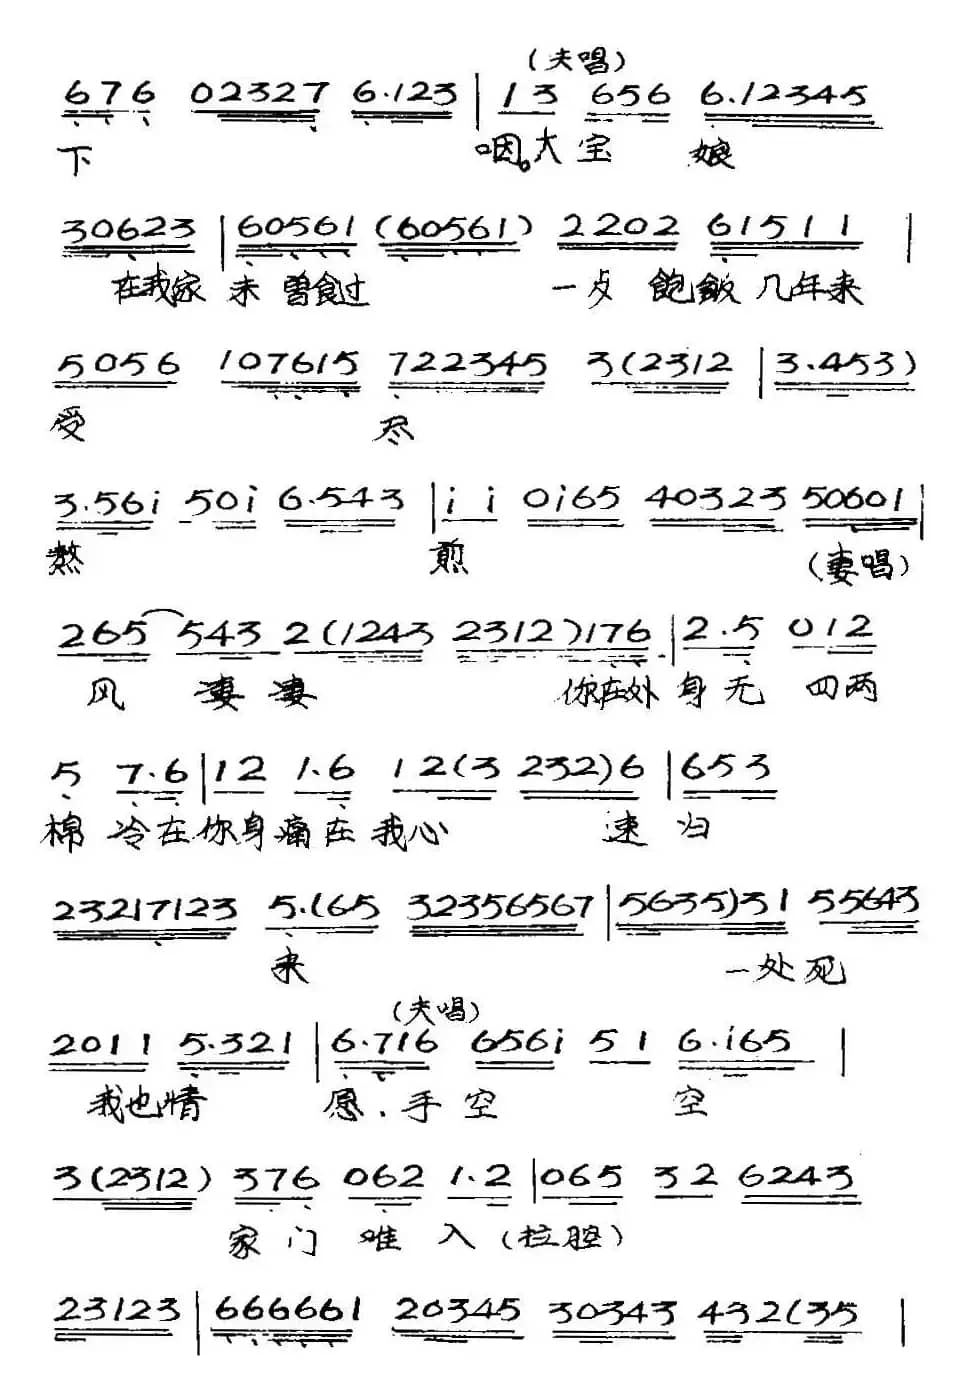 (夫唱)
676 02327 6.123 | 13 656 6.12345
下 咽。大宝 娘
30623 | 60561 (60561) 2202 61511 |
在我家未曾食过 一点 飽飯几年来
5056 107615 722345 3(2312 | 3.453)
受 尽
3.56i 50i 6.543 | i i 0i65 40323 50601 |
熬 煎 (妻唱)
265 543 2(1243 2312)176 | 2.5 012
风 凄凄 你在外身无 四两
5 7.6 | 12 1.6 12(3 232)6 | 653
棉 冷在你身痛在我心 速归
23217123 5.(65 32356567 | 5635)31 55643
来 一处死
(夫唱)
2011 5.321 | 6.716 656i 51 6.i65 |
我也情 愿.手空 空
3(2312) 376 062 1.2 | 065 32 6243
家门难入(拉腔)
23123 | 666661 20345 30343 432(35 |